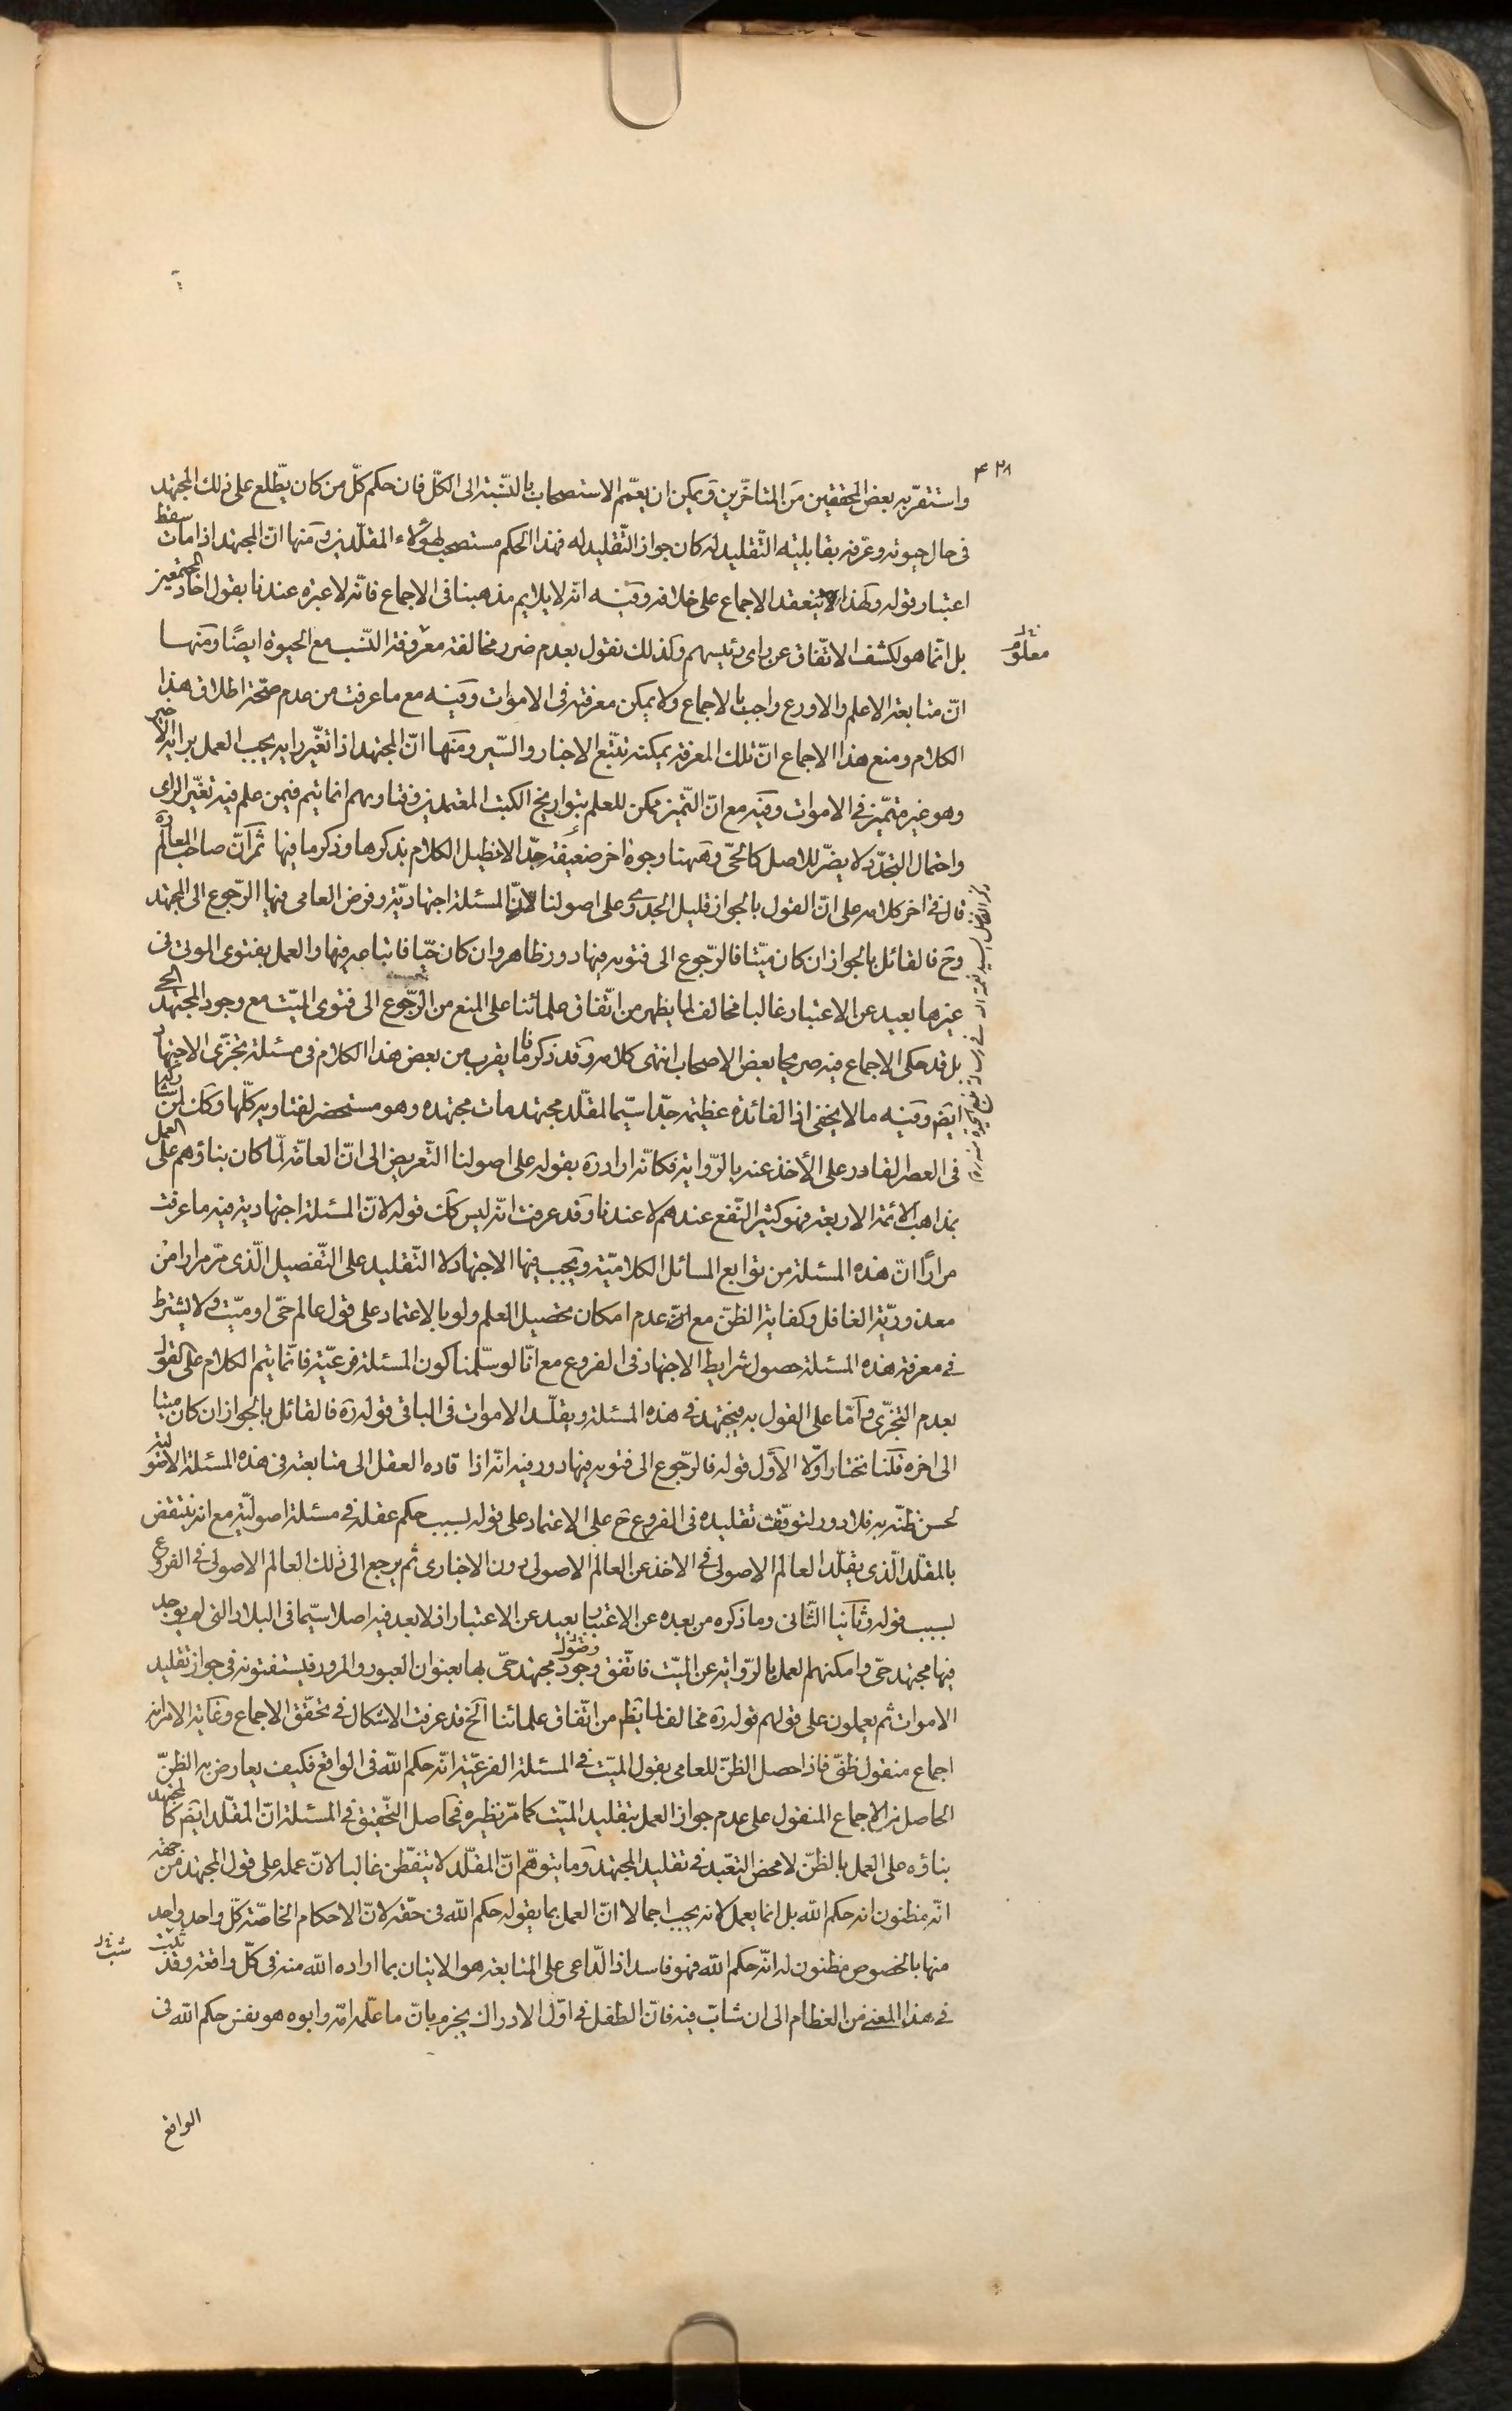 ۴۲۸
واستقر به بعض المحققين من المتاخّرين ويمكن ان يعمّم الاستصحاب بالنّسبة الى الكلّ فان حكم كلّ من كان يطّلع على ذلك المجتهد
فى حال حيوته وعرفه بقابليته التّقليد له كان جواز التّقليد له فهذا الحكم مستصحب لهؤلاء المقلّدين ومنها انّ المجتهد اذا مات سقط
اعتبار قوله ولهذا ينعقد الاجماع على خلافه وفيه انّه لا يلايم مذهبنا فى الاجماع فانّه لا عبرة عندنا بقول احاد المجتمعين
بل انّما هو لكشف الاتّفاق عن راى رئيسهم ولذلك نقول بعدم ضرر مخالفة معروفة النّسب مع الحيوة ايضًا ومنها
معلوم
انّ متابعة الاعلم والاورع واجب بالاجماع ولا يمكن معرفته فى الاموات وفيه مع ما عرفت من عدم صحّة اطلاق هذا
الكلام ومنع هذا الاجماع انّ تلك المعرفة يمكنه تتبّع الاخبار والسّير ومنها انّ المجتهد اذا تغيّر رايه يجب العمل برايه الاخير
وهو غير متميّز فى الاموات وفيه مع انّ التّميز ممكن للعلم بتواريخ الكتب المعتمدين وفتاويهم انما يتم فيمن علم فيه تغيّر الراى
واحتمال التّجدّد لا يضرّ للاصل كالحىّ وههنا وجوه اخر ضعيفة جدّا لا نطيل الكلام بذكرها وذكر ما فيها ثمّ انّ صاحب المعالم ره
قال فى اخر كلامه على انّ القول بالجواز قليل الجدوى على اصولنا لانّ المسئلة اجتهاديّة وفرض العامى فيها الرّجوع الى المجتهد
وح فالقائل بالجواز ان كان ميّتا فالرّجوع الى فتويه فيها دور ظاهر وان كان حيّا فاتباعه فيها والعمل بفتوى الموتى فى
غيرها بعيد عن الاعتبار غالبا مخالف لما يظهر من اتّفاق علمائنا على المنع من الرّجوع الى فتوى الميّت مع وجود المجتهد الحى
بل قد حكى الاجماع فيه صريحا بعض الاصحاب انتهى كلامه وقد ذكرنا ما يقرب من بعض هذا الكلام فى مسئلة تجزّى الاجتهاد
ايضً وفيه ما لا يخفى اذ الفائدة عظيمة جدّا سيّما لمقلّد مجتهد مات مجتهده وهو مستحضر لفتاويه كلّها وكان
فى العصر القادر على الأخذ عنه بالرّواية فكانّه اراد ره بقوله على اصولنا التّعريض الى انّ العامّة لمّا كان بناؤهم على العمل
بمذاهب الائمة الاربعة فهو كثير النّفع عندهم لا عندنا وقد عرفت انّه ليس كك قوله لانّ المسئلة اجتهادية فيه ما عرفت
مرارًا انّ هذه المسئلة من توابع المسائل الكلاميّة ويجب فيها الاجتهاد لا التّقليد على التّفصيل الّذى مرّ مرارا من
معذوريّة الغافل وكفاية الظنّ مع عدم امكان تحصيل العلم ولو بالاعتماد على قول عالم حىّ او ميّت ولا يشترط
فى معرفة هذه المسئلة حصول شرايط الاجتهاد فى الفروع مع انّا لو سلّمنا كون المسئلة فرعيّة فانّما يتم الكلام على القول
بعدم التجزّى وامّا على القول به فيجتهد فى هذه المسئلة ويقلّد الاموات فى الباقى قوله ره فالقائل بالجواز ان كان ميتا
الى اخره قلنا نختار اوّلا الأوّل قوله فالرّجوع الى فتويه فيها دور فيه انّه اذا قاده العقل الى متابعته فى هذه المسئلة الاصولية
لحسن ظنّه به فلا دور لتوقّف تقليده فى الفروع ح على الاعتماد على قوله بسبب حكم عقله فى مسئلة اصوليّة مع انه ينتقض
بالمقلّد الّذى يقلّد العالم الاصولى فى الاخذ عن العالم الاصولى دون الاخبارى ثم يرجع الى ذلك العالم الاصولى فى الفروع
بسبب قوله وثانيا الثّانى وما ذكره من بعده عن الاعتبار بعيد عن الاعتبار اذ لا بعد فيه اصلا سيّما فى البلاد التى لم يوجد
فيها مجتهد حىّ وامكنهم العمل بالرّواية عن الميّت فاتّفق وجود مجتهد حىّ بها بعنوان العبور والمرور فيستفتونه فى جواز تقليد
الاموات ثم يعملون على قولهم قوله ره مخالف لما يظهر من اتّفاق علمائنا الخ قد عرفت الاشكال فى تحقّق الاجماع وغاية الامر انه
اجماع منقول ظنّى فاذا حصل الظنّ للعامى بقول الميّت فى المسئلة الفرعيّة انّه حكم اللّه فى الواقع فكيف يعارض به الظنّ
الحاصل من الاجماع المنقول على عدم جواز العمل بتقليد الميّت كما مرّ نظيره فحاصل التّحقيق فى المسئلة انّ المقلّد ايضً كالمجتهد
بناؤه على العمل بالظنّ لا محض التعبّد فى تقليد المجتهد وما يتوهّم انّ المقلّد لا يتفطّن غالبا لانّ عمله على قول المجتهد من جهة
انّه مظنون انه حكم اللّه بل انما يعمل لانه يجب اجمالا انّ العمل بما يقوله حكم اللّه فى حقّه لانّ الاحكام الخاصّة كلّ واحد واحد
منها بالخصوص مظنون له انّه حكم اللّه فهو فاسد اذ الدّاعى على المتابعة هو الاتيان بما اراده اللّه منه فى كلّ واقعة وقد
فى هذا المعنى من الفطام الى ان شاب فيه فانّ الطفل فى اوّل الادراك يجزم بانّ ما علّمه امّه وابوه هو نفس حكم اللّه فى
الواقع